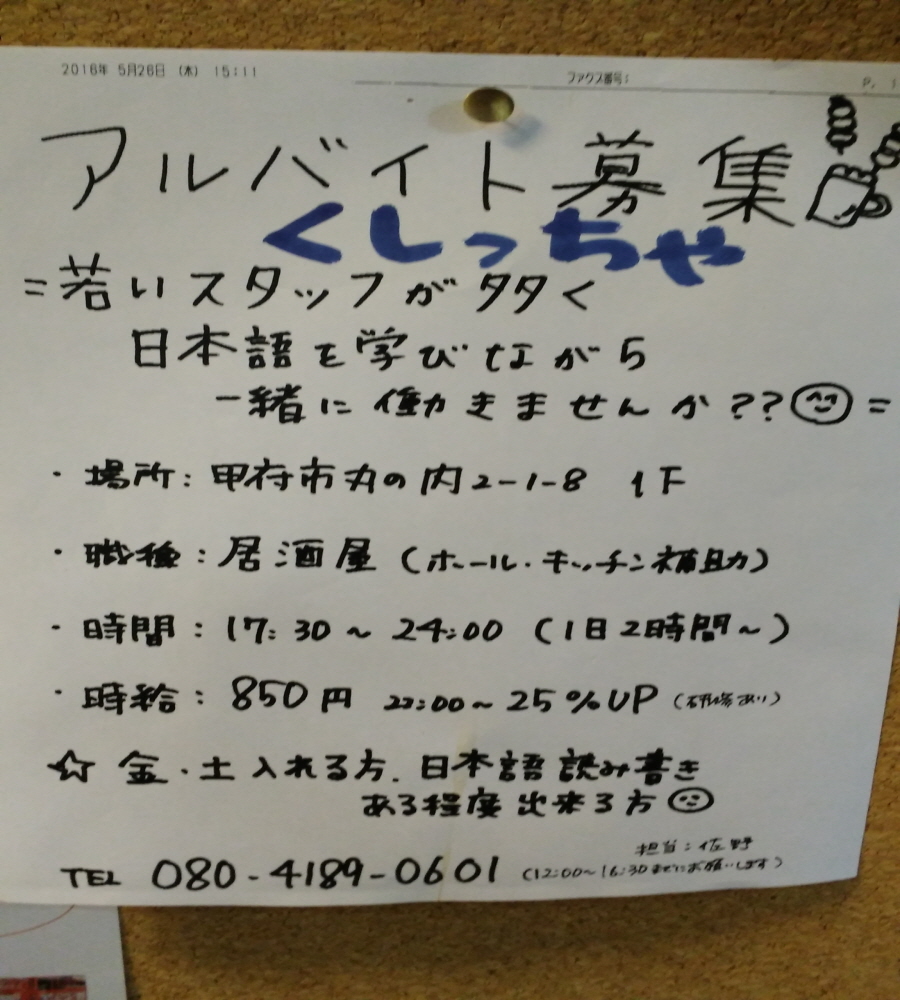 2016年 5月26日 (木) 15:11 ファクス番号: P. 1
アルバイト募集
くしっちゃ
=若いスタッフが多く
日本語を学びながら
一緒に働きませんか??=
・場所:甲府市丸の内2-1-8 1F
・職種:居酒屋(ホール・キッチン補助)
・時間:17:30~24:00(1日2時間~)
・時給:850円 22:00~25%UP(研修あり)
☆金・土入れる方、日本語読み書き
ある程度出来る方
担当:佐野
TEL 080-4189-0601(12:00~16:30までにお願いします)